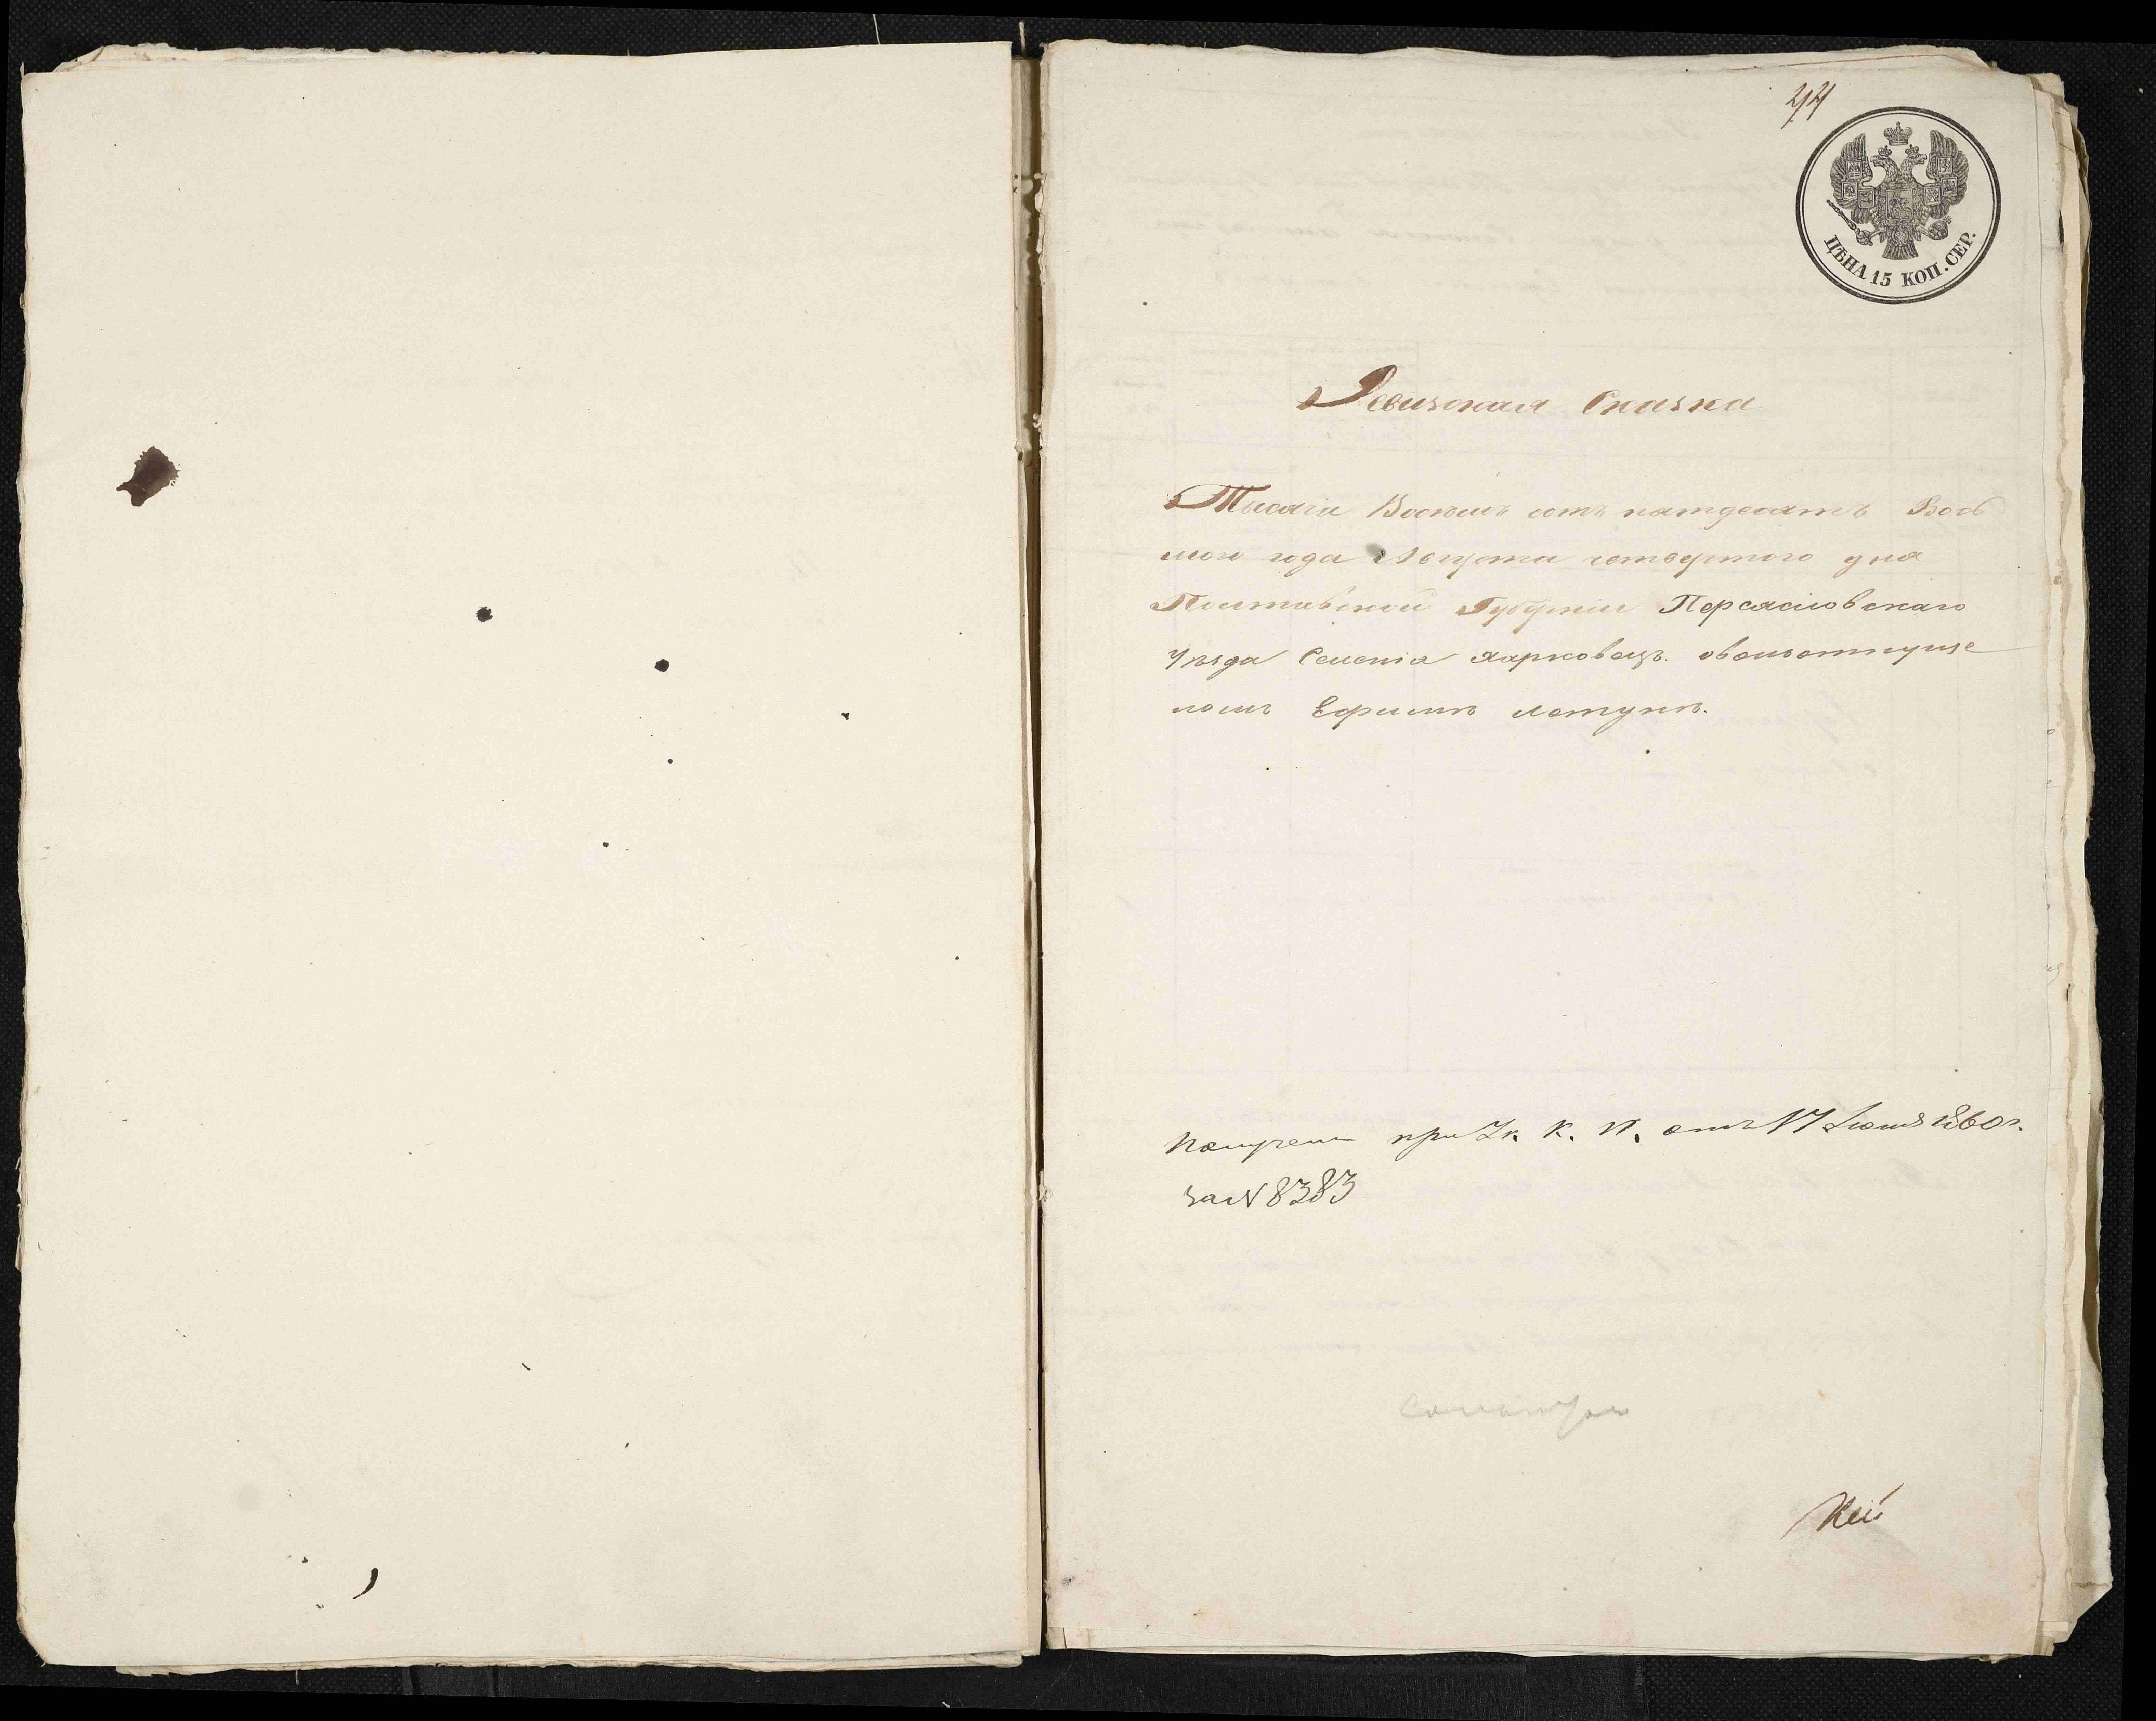 44
ЦѢНА 15 КОП. СЕР.
Ревизская Сказка
Тысяча Восемь сотъ пятдесятъ Вось
мого года Августа четвертого дня
Полтавской Губернии Переясловскаго
Уезда Селенія Харковецъ. овольнотпуще
номъ Ефиме Летуне.
Получена при Ук. К. П. отъ 17 Іюня 1860 г.
за N 8383